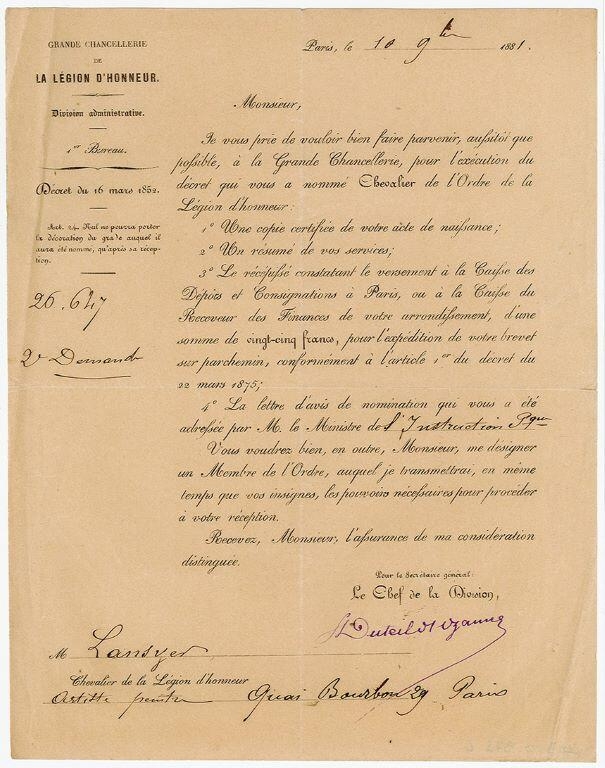 GRANDE CHANCELLERIE
DE
LA LÉGION D'HONNEUR.
Division administrative.
1er Bureau.
Décret du 16 mars 1852.
Art. 24. Nul ne pourra porter
la décoration du grade auquel il
aura été nommé, qu'après sa récep-
tion.
26.647
2e Demande
Paris, le 10 9bre 1881.
Monsieur,
Je vous prie de vouloir bien faire parvenir, aussitôt que
possible, à la Grande Chancellerie, pour l'exécution du
décret qui vous a nommé Chevalier de l'Ordre de la
Légion d'honneur:
1° Une copie certifiée de votre acte de naissance;
2° Un résumé de vos services;
3° Le récépissé constatant le versement à la Caisse des
Dépôts et Consignations à Paris, ou à la Caisse du
Receveur des Finances de votre arrondissement, d'une
somme de vingt-cinq francs, pour l'expédition de votre brevet
sur parchemin, conformément à l'article 1er du décret du
22 mars 1875;
4° La lettre d'avis de nomination qui vous a été
adressée par M. le Ministre de l'Instruction Pque
Vous voudrez bien, en outre, Monsieur, me désigner
un Membre de l'Ordre, auquel je transmettrai, en même
temps que vos insignes, les pouvoirs nécessaires pour procéder
à votre réception.
Recevez, Monsieur, l'assurance de ma considération
distinguée.
Pour le Secrétaire général:
Le Chef de la Division,
M Lansyer
Chevalier de la Légion d'honneur
Artiste peintre Quai Bourbon 29 Paris